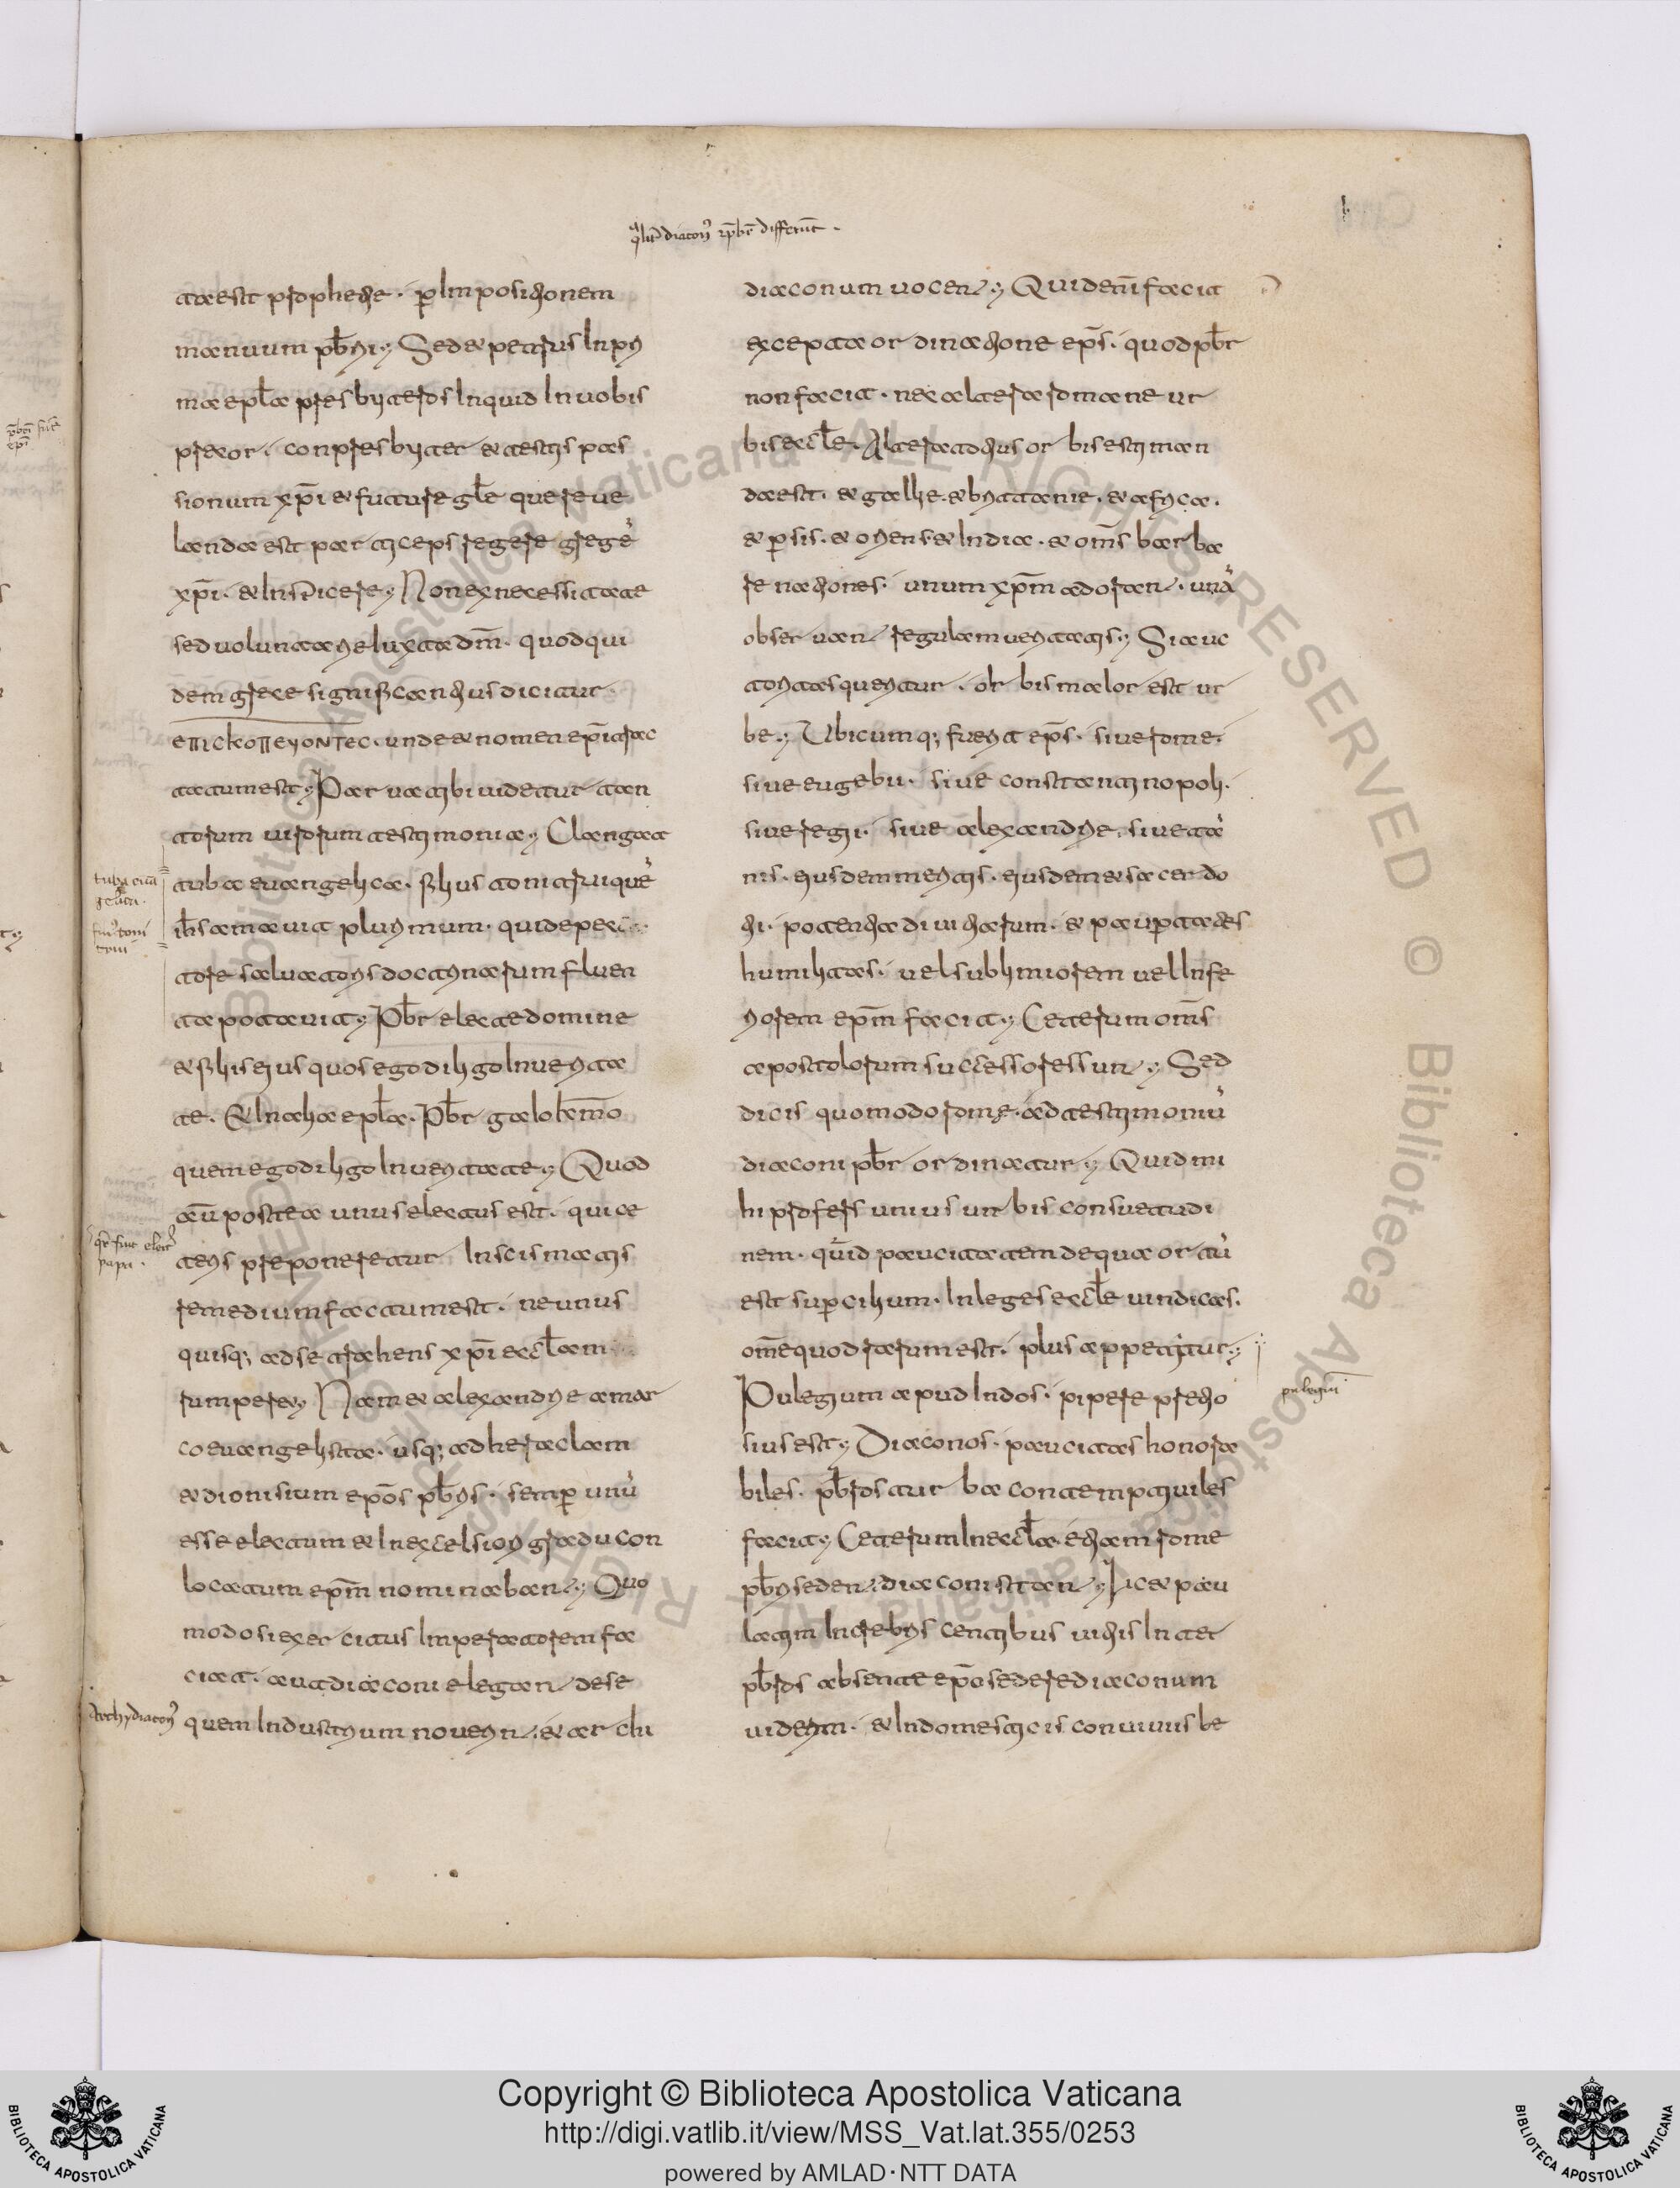 qlr̄ diacon᷒ ⁊ p̄br̄ differūt.
ta est prophetie. p̱ Impositionem
manuum pb̄ri; Sed & petrus In pri
ma epl̄a presbyteros Inquid In uobis
precor. conpresbyter & testis pas
sionum xp̄i & future gl̄e que reue
landa est particeps regere gregē
xp̄i. & Inspicere; Non ex necessitate
sed uoluntarie Iuxta dm̄. quod qui
dem grece significantius dicitur
εΠΙCKOΠΕΥΟΝΤΕC. unde & nomen ep̄i trac
tatum est; Parua tibi uidetur tan
torum uirorum testimonia; Clangat
tuba euangelica. filius tonitrui quē
ih̄s amauit plurimum. qui de pec
tore saluatoris doctrinarum fluen
ta potauit; Pb̄r electe domine
& filiis eius quos ego diligo In uerita
te. Et In alia epl̄a. Pb̄r gaio
quem ego diligo In ueritate; Quod
aū postea unus electus est. qui ce
teris preponeretur In scismatis
remedium factum est. ne unus
quisq; ad se trahens xp̄i eccl̄am
rumpere; Nam & alexandrie a mar
co euangelista. usq; ad heraclam
& dionisium ep̄os pb̄ris. semp̱ unū
esse electum & In excelsiori gradu con
locatum ep̄m nominabant; Quo
modo si exercitus Imperatorem fa
ciat. aut diaconi elegant de se
quem Industrium nouerint. & archi
diaconum uocent; Quid enī facit
excepta ordinatione ep̄s. quod pb̄r
non facit. nec altera romane ur
bis eccl̄e. Altera totius orbis estiman
da est. & gallie. & brittanie. & africa.
& p̱sis. & oriens & India. & om̄s barba
re nationes. unum xp̄m adorant. unā
obseruant regulam ueritatis; Si auc
toritas queritur. orbis maior est ur
be; Ubicumq; fuerit ep̄s. siue rome.
siue eugebii. siue constantinopoli.
siue regii. siue alexandrie. siue ta
nis. eiusdem meritis. eiusdem & sacerdo
tii. potentia diuitiarum. & paup̱tates
humilitas. uel sublimiorem uel Infe
riorem ep̄m facit; Ceterum om̄s
apostolorum successores sunt; Sed
dicis quomodo rome. ad testimoniū
diaconi pb̄r ordinatur; Quid mi
hi profers unius urbis consuetudi
nem. quid paucitatem de qua ortū
est sup̱cilium. In leges eccl̄e uindicas.
om̄e quod rarum est. plus appetitur;
Pulegium apud Indos. pipere pretio
sius est; Diaconos. paucitas honora
biles. pb̄ros turba contemptiuiles
facit; Ceterum In eccl̄a. etiam rome
pb̄ri sedent. diaconi stant; Licet pau
latim Increbris centibus uitiis Inter
pb̄ros absente ep̄o sedere diaconum
uiderim. & In domesticis conuiuiis be
tuba euā
gelica.
filius toni
trui
qr̄ fuit elect᷒
papa.
Archydiacon᷒
pulegiū
p̄bri sūt
ep̄i
Copyright © Biblioteca Apostolica Vaticana
http://digi.vatlib.it/view/MSS_Vat.lat.355/0253
powered by AMLAD·NTT DATA
BIBLIOTECA APOSTOLICA VATICANA
BIBLIOTECA APOSTOLICA VATICANA